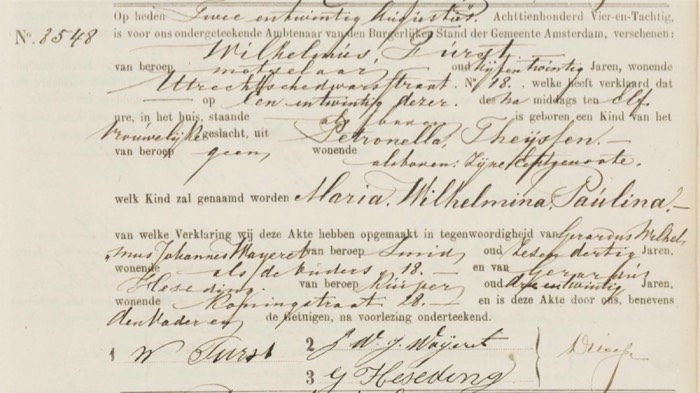 Op heden Twee en twintig Augustus. Achttienhonderd Vier-en-Tachtig,
No. 8548 is voor ons ondergeteekende Ambtenaar van den Burgerlijken Stand der Gemeente Amsterdam, verschenen:
Wilhelmus, Furst
van beroep metselaar oud Vijf en twintig Jaren, wonende
Utrechtschedwarsstraat. No. 18. welke heeft verklaard dat
op Een en twintig dezer. des na middags ten elf
ure, in het huis, staande als boven is geboren een Kind van het
Vrouwelijke geslacht, uit Petronella, Theyssen.
van beroep geen, wonende
alsboven: Zijne Echtgenoote.
welk Kind zal genaamd worden Maria, Wilhelmina, Paulina.
van welke Verklaring wij deze Akte hebben opgemaakt in tegenwoordigheid van Gerardus Wilhel
mus Johannes Wayeret van beroep Smid oud dertig Jaren,
wonende als de Ouders, 18. en van Gerardus
Heseding. van beroep Kuiper oud drie en twintig Jaren,
wonende Koningstraat 28. en is deze Akte door ons, benevens
den Vader en de Getuigen, na voorlezing onderteekend.
1 W Furst 2 W. J. Wayeret
3 G Heseding